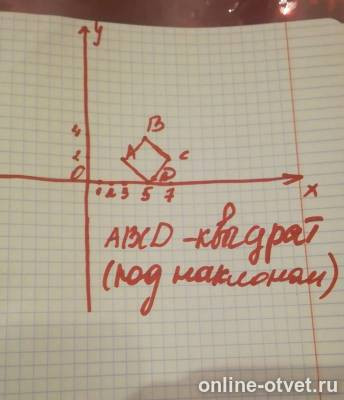 y
B
4
A
C
2
D
0
1 2 3 5 7
x
ABCD - квадрат
(под наклоном)
online-otvet.ru